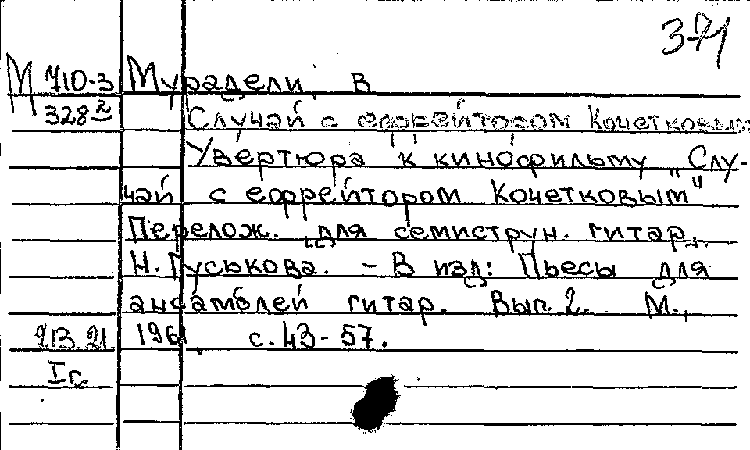 371
М 710-3 Мурадели, В
328² Случай с ефрейтором Кочетковым
Увертюра к кинофильму „Слу-
чай с ефрейтором Кочетковым"
Перелож. для семиструн. гитар
Н. Гуськова. - В изд: Пьесы для
ансамблей гитар. Вып. 2. М.,
1961, с. 43-57.
Iс